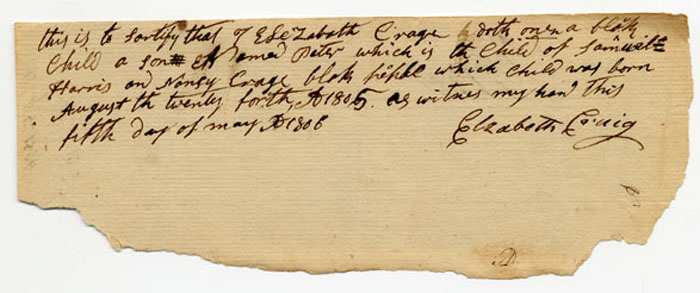 this is to sortify that I Elezabeth Crage doth onen a blak
Child a son named Peter which is th Child of Samuel
Harris and Nansy Crage blak peple which Child was born
August th twenty forth AD 1805. as witnes my hand this
fifth day of may AD 1806
Elzabeth Craig